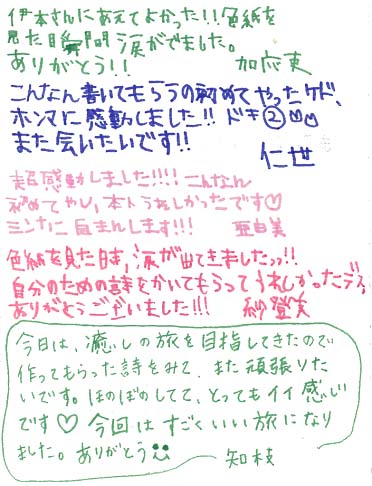 伊本さんにあえてよかった!!色紙を
見た瞬間涙がでました。
ありがとう!! 加応束
こんなん書いてもらうの初めてやったケド、
ホンマに感動しました!! ドキ②
また会いたいです!! 仁世
超感動しました!!!! こんなん
初めてやし、本人うれしかったです♡
ミンナに自まんします!!! 亜由美
色紙を見た日時、涙が出てきましたっ!!
自分のための詩をかいてもらってうれしかったデス。
ありがとうございました!!! 紗登美
今日は、癒しの旅を目指してきたので
作ってもらった詩をみて、また頑張りた
いです。ほのぼのしてて、とってもイイ感じ
です♡ 今回はすごくいい旅になり
ました。ありがとう 知枝